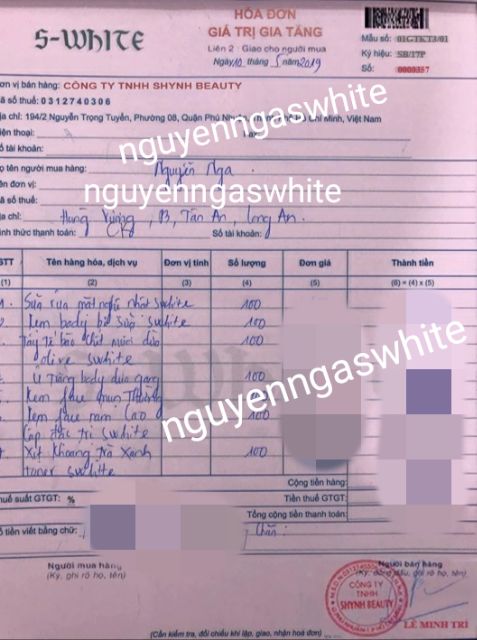 S-WHITE
HÓA ĐƠN
GIÁ TRỊ GIA TĂNG
Liên 2 : Giao cho người mua
Ngày 10 tháng 5 năm 2019
Mẫu số: 01GTKT3/01
Ký hiệu: SB/17P
Số: 0000357
ơn vị bán hàng: CÔNG TY TNHH SHYNH BEAUTY
ã số thuế: 0312740306
ịa chỉ: 194/2 Nguyễn Trọng Tuyển, Phường 08, Quận Phú Nhuận, Minh, Việt Nam
iện thoại:
Fax:
ố tài khoản:
nguyenngaswhite
ọ tên người mua hàng: Nguyễn Nga
ên đơn vị:
nguyenngaswhite
ã số thuế:
ịa chỉ: Hùng Vương, P3, Tân An, Long An.
ình thức thanh toán: CK
Số tài khoản:
STT Tên hàng hóa, dịch vụ Đơn vị tính Số lượng Đơn giá Thành tiền
(1) (2) (3) (4) (5) (6) = (4) x (5)
Sữa rửa mặt nghệ nhật swhite 100
Kem body bò sữa swhite 100
Tẩy tế bào chết dừa 100
olive swhite
Ủ trắng body dưa gang 100
Kem face 100
Kem face nám Cao 100
Cấp đặc trị swhite
Xịt khoáng trà xanh 100
toner swhite
nguyenngaswhite
Cộng tiền hàng:
huế suất GTGT: %
Tiền thuế GTGT:
Tổng cộng tiền thanh toán:
ố tiền viết bằng chữ:
chẵn.
Người mua hàng
(Ký, ghi rõ họ, tên)
Người bán hàng
(Ký, đóng dấu, ghi rõ họ, tên)
CÔNG TY
TNHH
SHYNH BEAUTY
LÊ MINH TRÍ
(Cần kiểm tra, đối chiếu khi lập, giao, nhận hoá đơn)